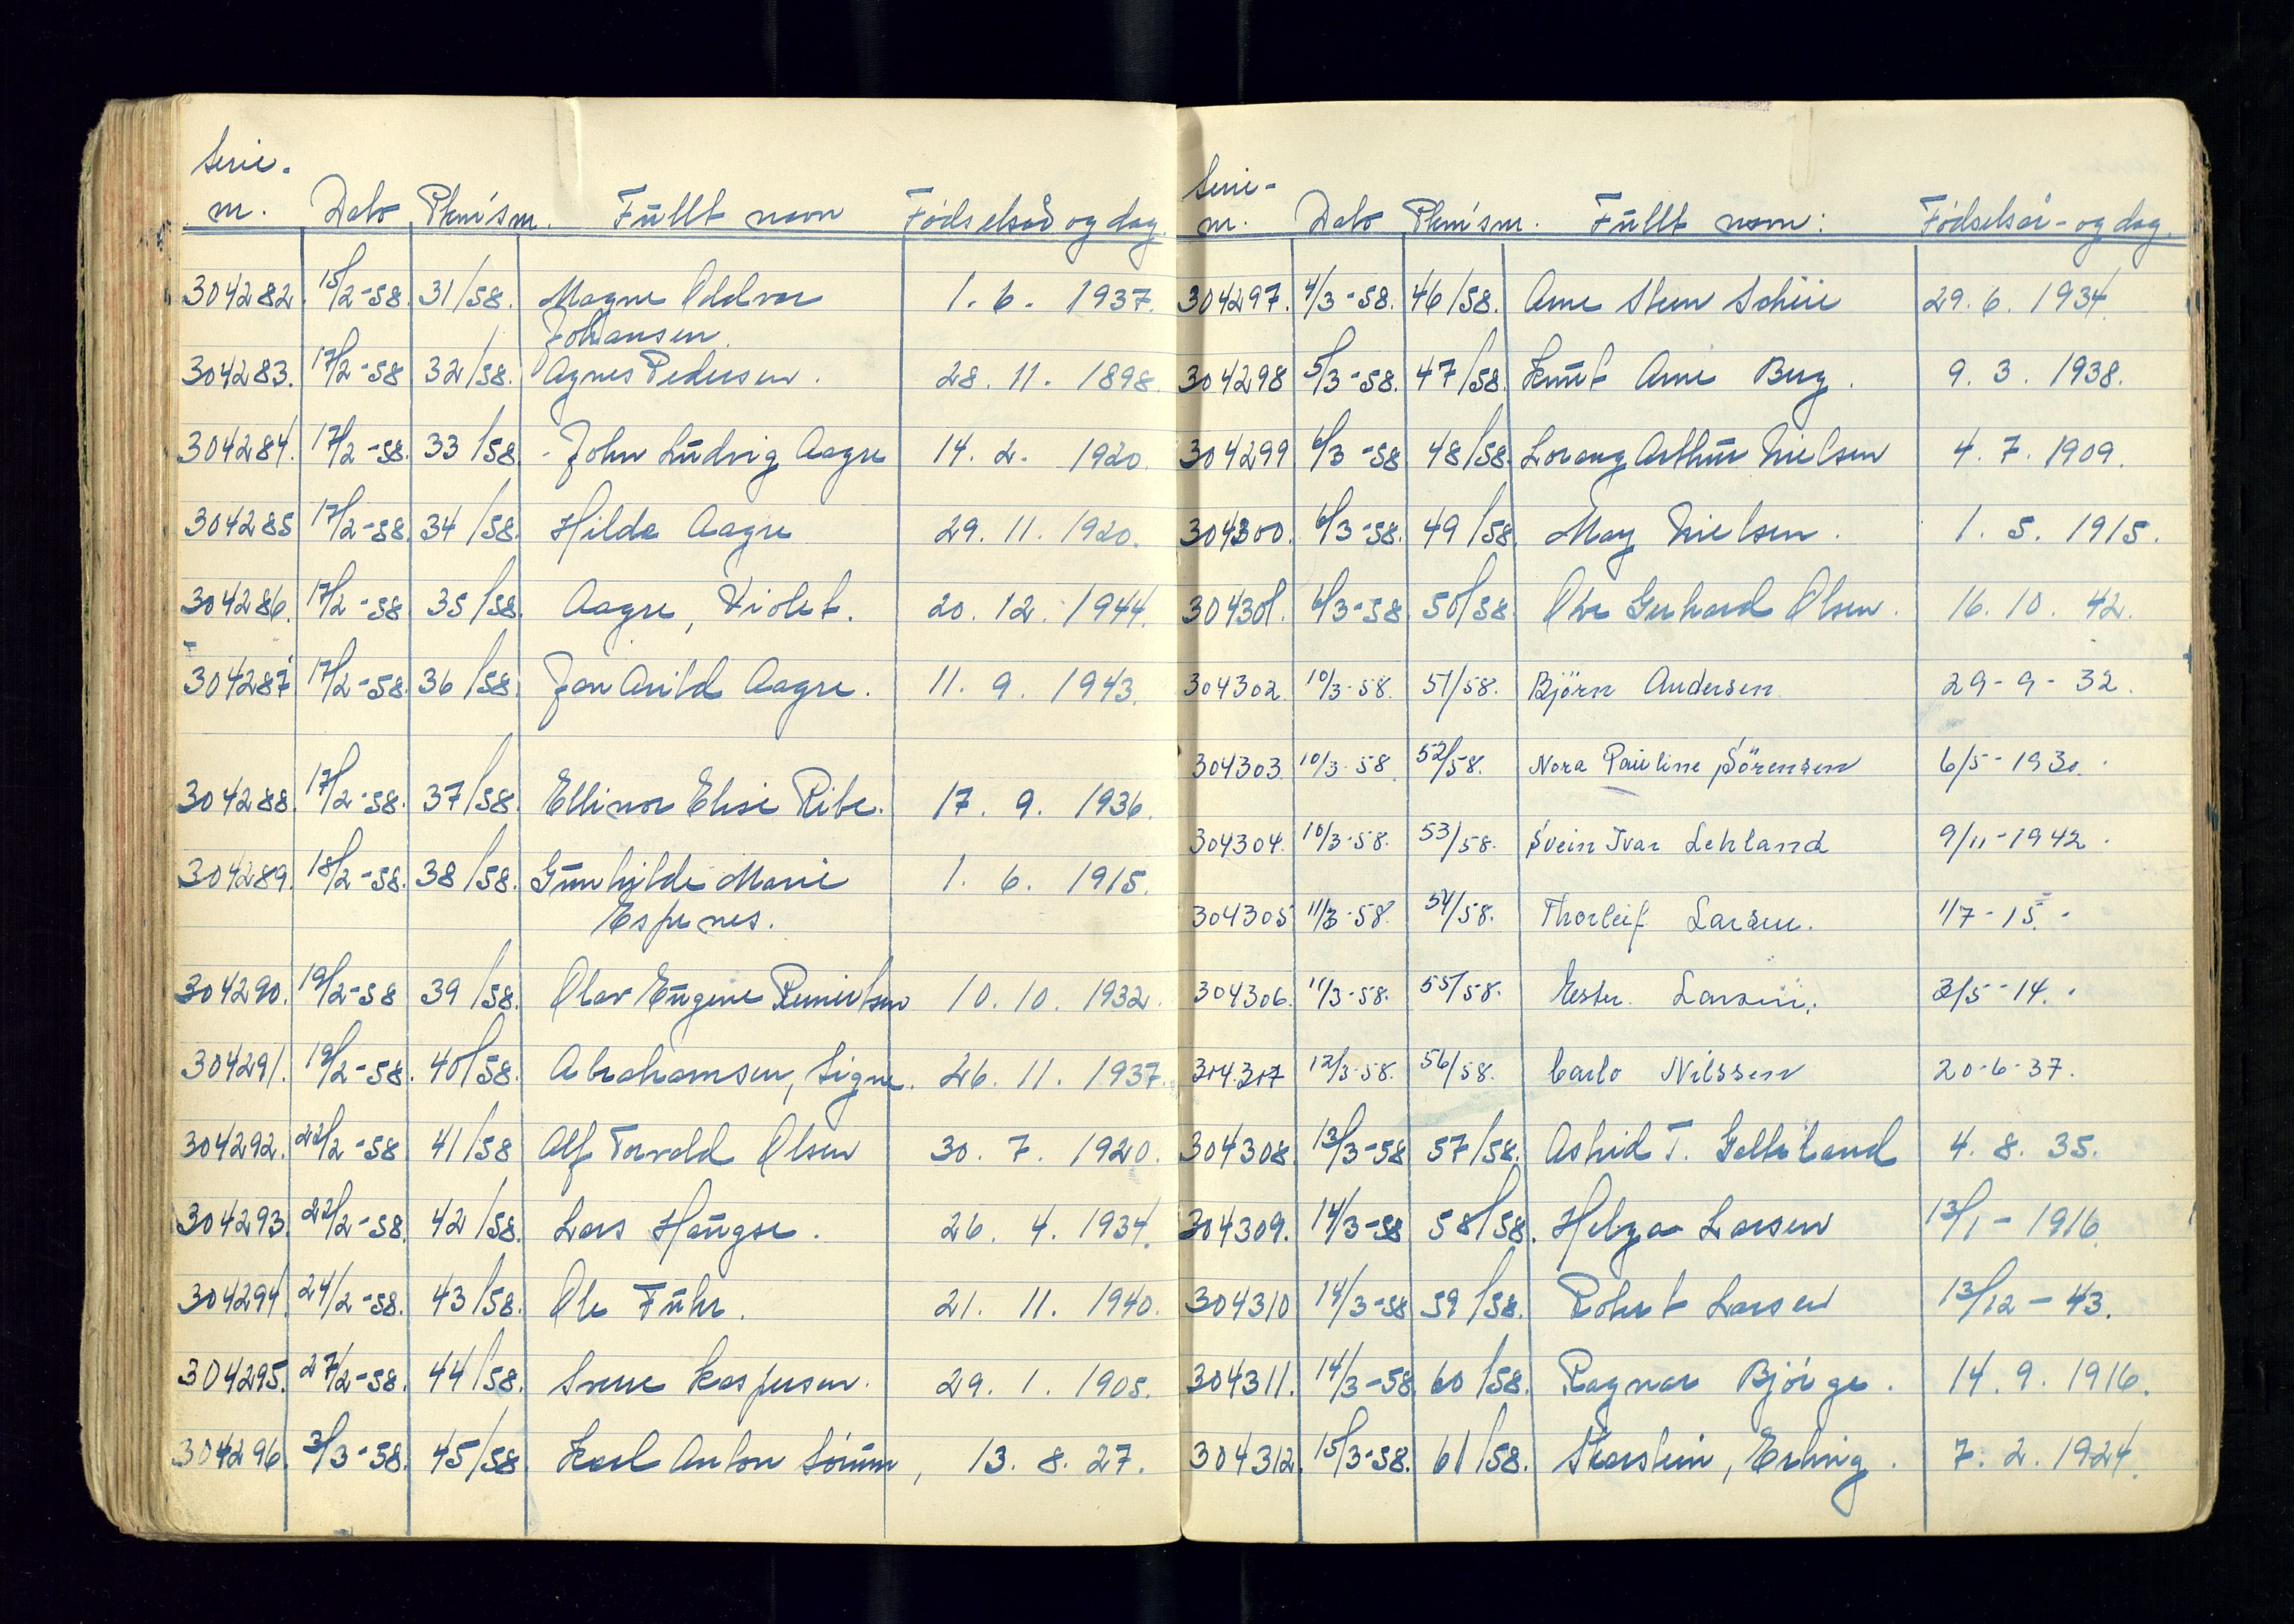 Serie-
nr. Dato Pknr's nr. Fullt navn Fødselsår og dag.
304282. 15/2-58. 31/58. Magne Oddvar 1. 6. 1937.
Johansen.
304283. 17/2-58 32/58. Agnes Pedersen. 28. 11. 1898.
304284. 17/2-58. 33/58. John Ludvig Aagre 14. 2. 1920.
304285 17/2-58. 34/58. Hilda Aagre 29. 11. 1920.
304286. 17/2-58 35/58. Aagre, Violet. 20. 12. 1944.
304287 17/2-58. 36/58. Jan Arild Aagre. 11. 9. 1943.
304288. 17/2-58. 37/58. Ellinor Elise Ribe. 17. 9. 1936.
304289. 18/2-58. 38/58. Gunhilde Marie 1. 6. 1915.
Espenes.
304290. 19/2-58 39/58. Olav Eugene Reinertsen 10. 10. 1932.
304291. 19/2-58. 40/58. Abrahamsen, Signe. 26. 11. 1937.
304292. 22/2-58 41/58 Alf Torvald Olsen 30. 7. 1920.
304293. 22/2-58. 42/58. Lars Haugse. 26. 4. 1934.
304294. 24/2-58. 43/58. Ole Fuhr. 21. 11. 1940.
304295. 27/2-58. 44/58. Sverre Kaspersen. 29. 1. 1905.
304296. 3/3-58. 45/58. Karl Anton 13. 8. 27.
Serie-
nr. Dato Pknr's nr. Fullt navn: Fødselsår- og dag.
304297. 4/3-58. 46/58. Arne Steen 29. 6. 1934.
304298 5/3-58. 47/58. Knut Arne Berg. 9. 3. 1938.
304299 6/3-58 48/58. Lorang Arthur Nielsen 4. 7. 1909.
304300. 6/3-58. 49/58. May Nielsen. 1. 5. 1915.
304301. 6/3-58 50/58. Ove Gerhard Olsen. 16. 10. 42.
304302. 10/3-58. 51/58. Björn Andersen 29-9-32.
304303 10/3-58. 52/58. Nora Pauline Sörensen 6/5-1930.
304304. 10/3-58. 53/58. Svein Ivar Lehland 9/11-1942.
304305 11/3-58. 54/58. Thorleif Larsen. 1/7-15.
304306. 11/3-58. 55/58. Ester. Larsen. 3/5-14.
304307 12/3-58. 56/58. Carlo Nilssen 20-6-37.
304308. 13/3-58 57/58. Astrid T. 4. 8. 35.
304309. 14/3-58 58/58. Helga Larsen 13/1-1916.
304310 14/3-58 59/58. Robert Larsen 13/12-43.
304311. 14/3-58 60/58. Ragnar Bjørge. 14. 9. 1916.
304312. 15/3-58. 61/58. Skarstein, Erling. 7. 2. 1924.